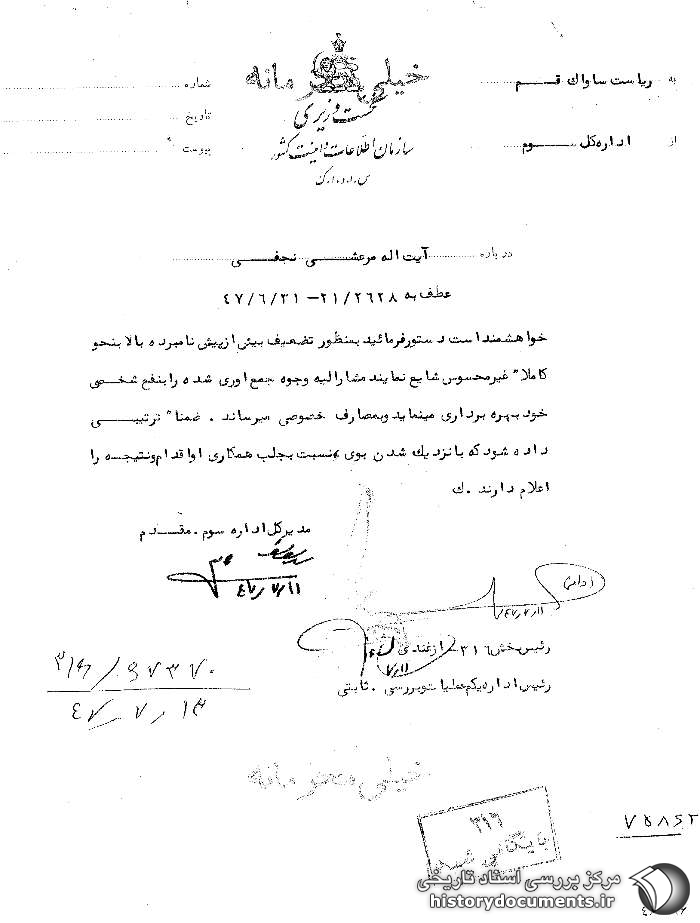 خیلی محرمانه
به ریاست ساواك قم
شماره
نخست وزیری
تاریخ
از اداره کل سوم
سازمان اطلاعات و امنیت کشور
پیوست
س.ا.و.ا.ک
درباره آیت اله مرعشی نجفی
عطف به ۲۱/۲۶۲۸ - ۴۷/۶/۳۱
خواهشمند است دستور فرمائید بمنظور تضعیف بیش از پیش نامبرده بالا بنحو
کاملا" غیر محسوس شایع نمایند مشارالیه وجوه جمع آوری شده را بنفع شخصی
خود بهره برداری مینماید و بمصارف خصوصی میرساند . ضمنا" ترتیبی
داده شود که با نزدیك شدن بوی ،نسبت بجلب همکاری او اقدام و نتیجه را
اعلام دارند .ك
مدیر کل اداره سوم . مقدم
۴۷/۷/۱۱
۴۷/۷/۱۱
رئیس بخش ۳۱۶ . ازغندی
۷/۱۱
رئیس اداره یکم عملیات و بررسی . ثابتی
۳۱۶/۹۷۳۷۰
۴۷/۷/۱۳
خیلی محرمانه
۳۱۶
بایگانی شد
۷۵۸۶۲
مرکز بررسی اسناد تاریخی
historydocuments.ir